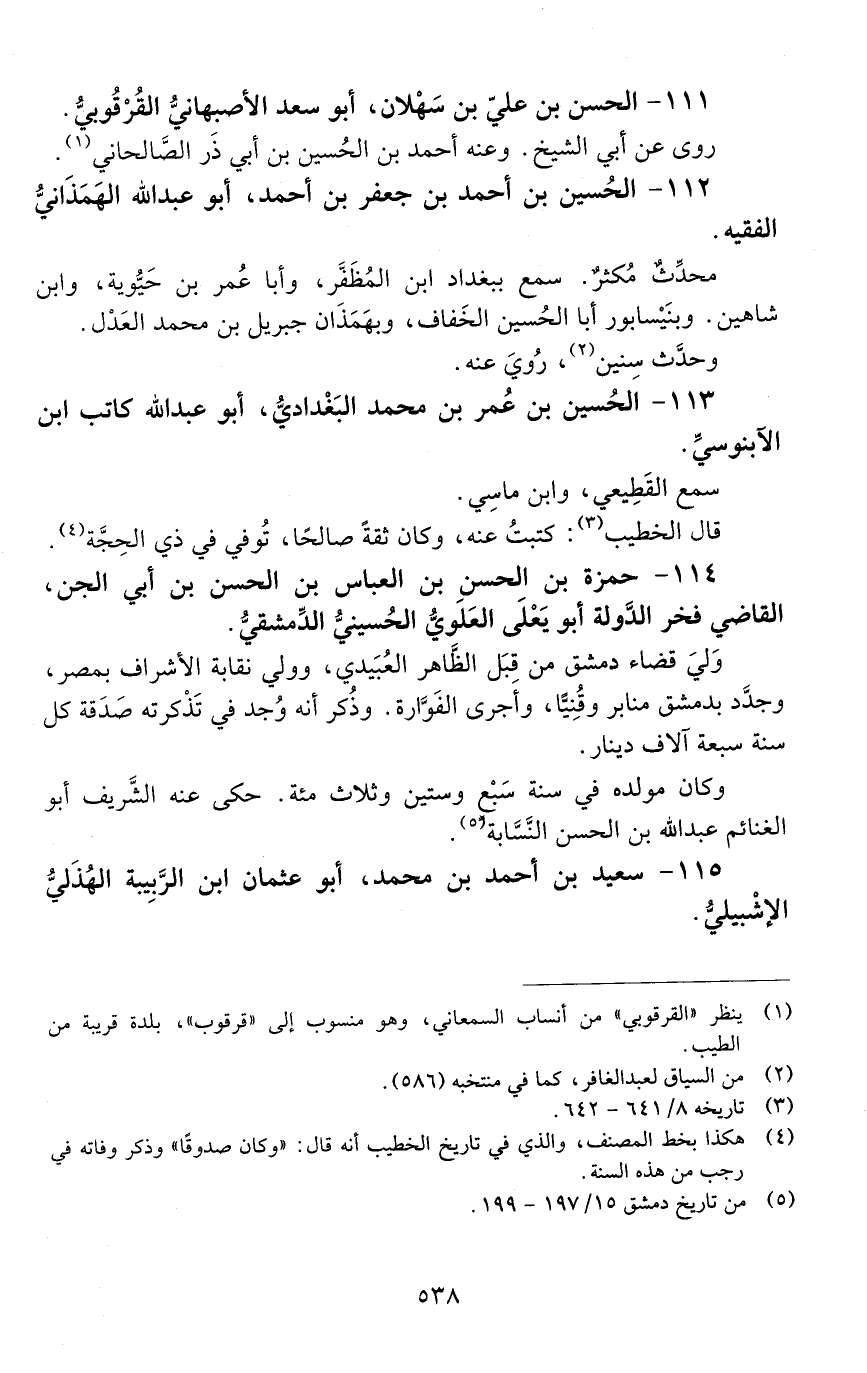 ١١١- الحسن بن عليّ بن سَهْلان، أبو سعد الأصبهانيُّ القُرْقُوبيُّ.
روى عن أبي الشيخ. وعنه أحمد بن الحُسين بن أبي ذَر الصَّالحاني(١).
١١٢- الحُسين بن أحمد بن جعفر بن أحمد، أبو عبدالله الهَمَذَانيُّ
الفقيه.
محدِّثٌ مُكثرٌ. سمع ببغداد ابن المُظَفَّر، وأبا عُمر بن حَيُّوية، وابن
شاهين. وبنَيْسابور أبا الحُسين الخَفاف، وبهَمَذَان جبريل بن محمد العَدْل.
وحدَّث سِنين(٢)، رُويَ عنه.
١١٣- الحُسين بن عُمر بن محمد البَغْداديُّ، أبو عبدالله كاتب ابن
الآبنوسيِّ.
سمع القَطِيعي، وابن ماسِي.
قال الخطيب(٣): كتبتُ عنه، وكان ثقةً صالحًا، تُوفي في ذي الحِجَّة(٤).
١١٤- حمزة بن الحسن بن العباس بن الحسن بن أبي الجن،
القاضي فخر الدَّولة أبو يَعْلَى العَلَويُّ الحُسينيُّ الدِّمشقيُّ.
وَليَ قضاء دمشق من قِبَل الظَّاهر العُبَيدي، وولي نقابة الأشراف بمصر،
وجدَّد بدمشق منابر وقُنِيًّا، وأجرى الفَوَّارة. وذُكر أنه وُجد في تَذْكرته صَدَقة كل
سنة سبعة آلاف دينار.
وكان مولده في سنة سَبْعٍ وستين وثلاث مئة. حكى عنه الشَّريف أبو
الغنائم عبدالله بن الحسن النَّسَّابة(٥).
١١٥- سعيد بن أحمد بن محمد، أبو عثمان ابن الرَّبِيبة الهُذَليُّ
الإشْبيليُّ.
(١) ينظر «القرقوبي» من أنساب السمعاني، وهو منسوب إلى «قرقوب»، بلدة قريبة من
الطيب.
(٢) من السياق لعبدالغافر، كما في منتخبه (٥٨٦).
(٣) تاريخه ٨/ ٦٤١ - ٦٤٢.
(٤) هكذا بخط المصنف، والذي في تاريخ الخطيب أنه قال: «وكان صدوقًا» وذكر وفاته في
رجب من هذه السنة.
(٥) من تاريخ دمشق ١٥/ ١٩٧ - ١٩٩.
٥٣٨